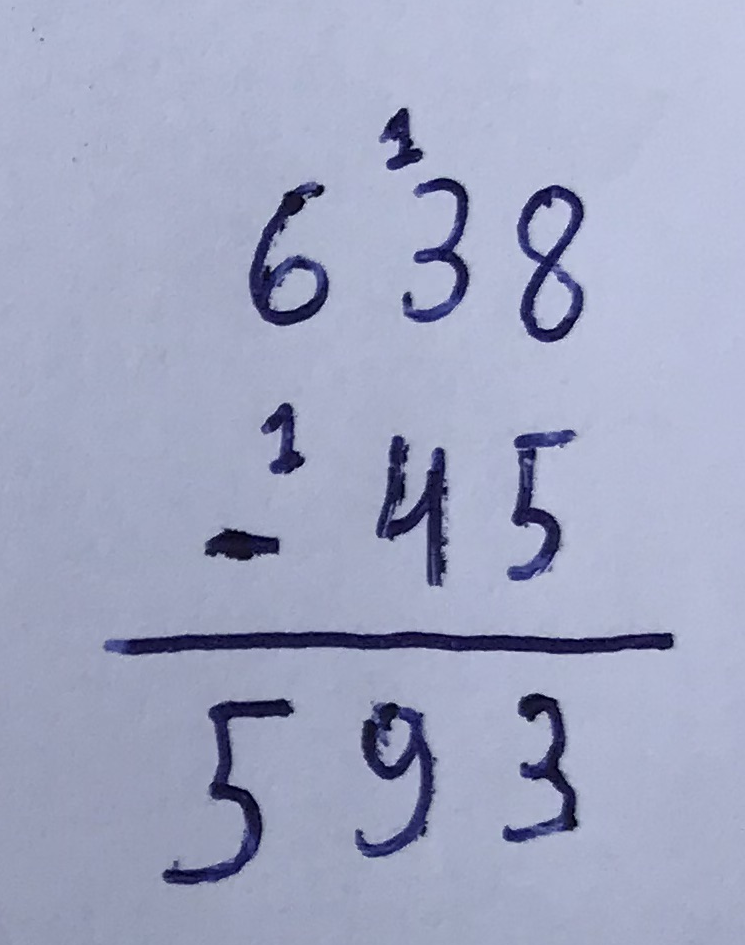 1
638
1
- 45
593